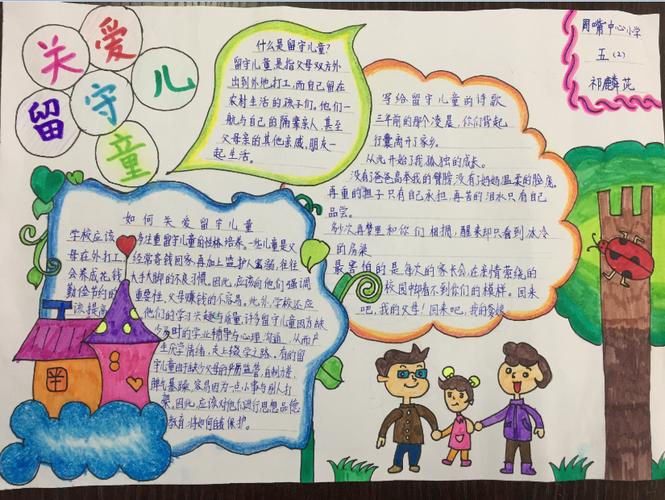 关爱
留守儿
童
周嘴中心小学
五(2)
祁麟芘
什么是留守儿童?
留守儿童是指父母双方外
出到外地打工,而自己留在
农村生活的孩子们。他们一
般与自己的隔辈亲人,甚至
父母亲的其他亲戚,朋友一
起生活。
写给留守儿童的诗歌
三年前的那个凌晨,你们背起
行囊离开了家乡。
从此开始了我孤独的成长。
没有了爸爸高举我的臂膀没有了妈妈温柔的脸庞
再重的担子只有自己承担再苦的泪水只有自己
品尝。
多少次再梦里和你们相拥,醒来却只看到冰冷
的房梁
最害怕的是每次的家长会在亲情萦绕的
校园却看不到你们的模样。回来
吧,我的父母!回来吧,我的爹娘
如何关爱留守儿童
学校应该 注重留守儿童的性格培养。一些儿童父
母在外打工,经常寄钱回家,再加上监护人宽溺,往往
会养成花钱大手大脚的不良习惯。因此,应该向他们强调
勤俭节约的重要性,父母赚钱的不容易。此外,学校还应
该提高他们的学习兴趣与质量,许多留守儿童因为缺
少及时的学业辅导与心理沟通,从而产
生厌学情绪,走上辍学之路,有的留
守儿童由于缺少父母的 监管,自制力差
脾气暴躁,容易因为一点小事与别人打
架,因此,应该对他们进行思想品德
教育,